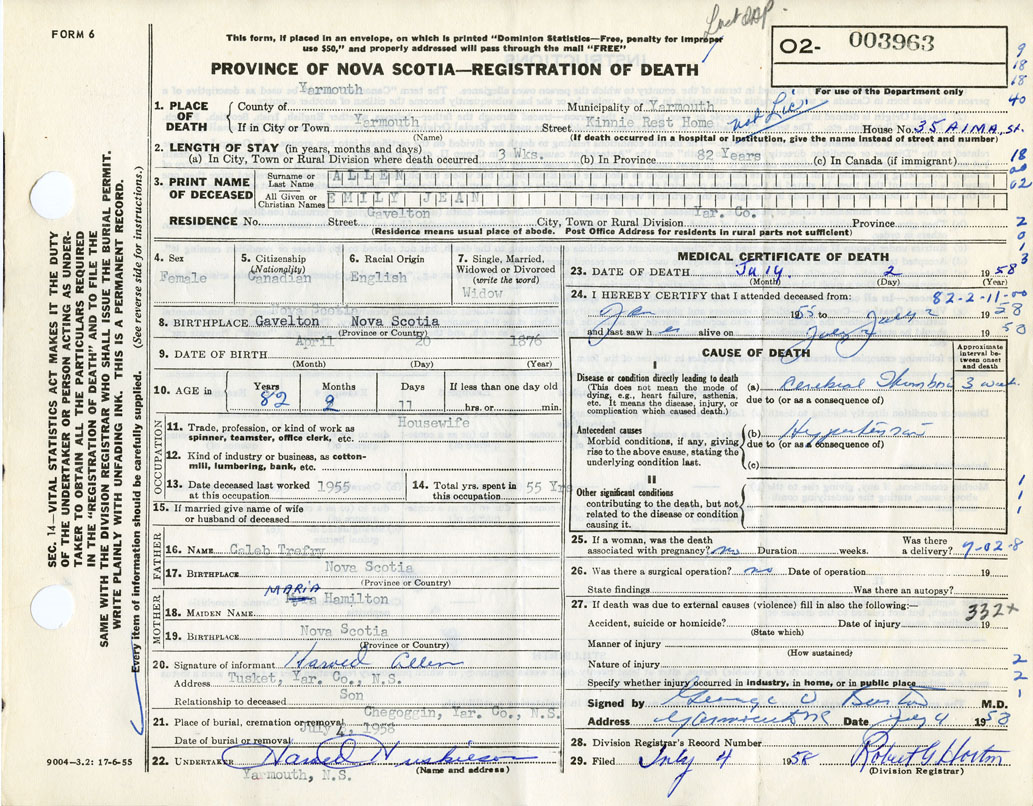 Last OAP.
FORM 6
This form, if placed in an envelope, on which is printed "Dominion Statistics—Free, penalty for improper
use $50," and properly addressed will pass through the mail "FREE"
O2- 003963
For use of the Department only
PROVINCE OF NOVA SCOTIA—REGISTRATION OF DEATH
1. PLACE OF DEATH
County of Yarmouth Municipality of Yarmouth
If in City or Town Yarmouth Street Kinnie Rest Home not Lic. House No. 35 AIMA St.
(Name) (If death occurred in a hospital or institution, give the name instead of street and number)
2. LENGTH OF STAY (in years, months and days)
(a) In City, Town or Rural Division where death occurred 3 Wks. (b) In Province 82 Years (c) In Canada (if immigrant)
3. PRINT NAME OF DECEASED
Surname or Last Name ALLEN
All Given or Christian Names EMILY JEAN
RESIDENCE No. Street Gavelton City, Town or Rural Division Yar. Co. Province
(Residence means usual place of abode. Post Office Address for residents in rural parts not sufficient)
4. Sex
Female
5. Citizenship
(Nationality)
Canadian
6. Racial Origin
English
7. Single, Married,
Widowed or Divorced
(write the word)
Widow
Nova Scotia
8. BIRTHPLACE Gavelton Nova Scotia
(Province or Country)
9. DATE OF BIRTH April 20 1876
(Month) (Day) (Year)
10. AGE in
Years 82
Months 2
Days 11
If less than one day old
hrs. or min.
OCCUPATION
11. Trade, profession, or kind of work as
spinner, teamster, office clerk, etc. Housewife
12. Kind of industry or business, as cotton-
mill, lumbering, bank, etc.
13. Date deceased last worked
at this occupation 1955
14. Total yrs. spent in
this occupation 55 Yrs
15. If married give name of wife
or husband of deceased
FATHER
16. NAME Caleb Trefry
17. BIRTHPLACE Nova Scotia
(Province or Country)
MOTHER
MARIA
18. MAIDEN NAME Hamilton
19. BIRTHPLACE Nova Scotia
(Province or Country)
20. Signature of informant Harved Allen
Address Tusket, Yar. Co., N.S.
Relationship to deceased Son
21. Place of burial, cremation or removal Chegoggin, Yar. Co., N.S.
Date of burial or removal July 4, 1958
22. UNDERTAKER Harved Huskilson
(Name and address)
Yarmouth, N.S.
9004—3.2: 17-6-55
MEDICAL CERTIFICATE OF DEATH
23. DATE OF DEATH July 2 1958
(Month) (Day) (Year)
24. I HEREBY CERTIFY that I attended deceased from: 82-2-11-00
Jan 1955 to July 2 1958
and last saw her alive on July 2 1958
CAUSE OF DEATH
Approximate
interval be-
tween onset
and death
I
Disease or condition directly leading to death
(This does not mean the mode of
dying, e.g., heart failure, asthenia,
etc. It means the disease, injury, or
complication which caused death.)
(a) Cerebral Thrombosis 3 weeks
due to (or as a consequence of)
Antecedent causes
Morbid conditions, if any, giving
rise to the above cause, stating the
underlying condition last.
(b) Hypertension
due to (or as a consequence of)
(c)
II
Other significant conditions
contributing to the death, but not
related to the disease or condition
causing it.
25. If a woman, was the death
associated with pregnancy? no Duration weeks. Was there
a delivery? 9-02-8
26. Was there a surgical operation? no Date of operation 19
State findings Was there an autopsy?
27. If death was due to external causes (violence) fill in also the following:—
332x
Accident, suicide or homicide? Date of injury 19
(State which)
Manner of injury
(How sustained)
Nature of injury
Specify whether injury occurred in industry, in home, or in public place
Signed by George V Burton M.D.
Address Yarmouth NS Date July 4 1958
28. Division Registrar's Record Number
29. Filed July 4 1958 Robert G Horton
(Division Registrar)
SEC. 14—VITAL STATISTICS ACT MAKES IT THE DUTY
OF THE UNDERTAKER OR PERSON ACTING AS UNDER-
TAKER TO OBTAIN ALL THE PARTICULARS REQUIRED
IN THE "REGISTRATION OF DEATH" AND TO FILE THE
SAME WITH THE DIVISION REGISTRAR WHO SHALL ISSUE THE BURIAL PERMIT.
WRITE PLAINLY WITH UNFADING INK. THIS IS A PERMANENT RECORD.
Every item of information should be carefully supplied. (See reverse side for instructions.)
9
18
68
40
18
00
02
2
0
1
3
1
1
1
2
2
1